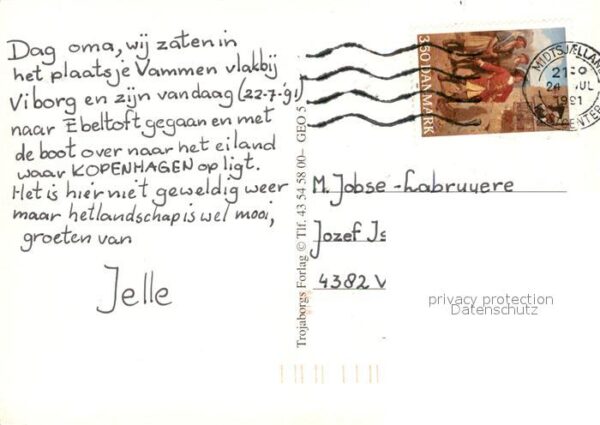 Dag oma, wij zaten in
het plaatsje Vammen vlakbij
Viborg en zijn vandaag (22-7-'91)
naar Ebeltoft gegaan en met
de boot over naar het eiland
waar KOPENHAGEN op ligt.
Het is hier niet geweldig weer
maar het landschap is wel mooi,
groeten van
Jelle
Trojaborgs Forlag © Tlf. 43 54 58 00 – GEO 5
350 DANMARK
MIDTSJÆLLANDS
24 JUL
1991
M. Jobse-Labruyere
Jozef Is
4382 V
privacy protection
Datenschutz